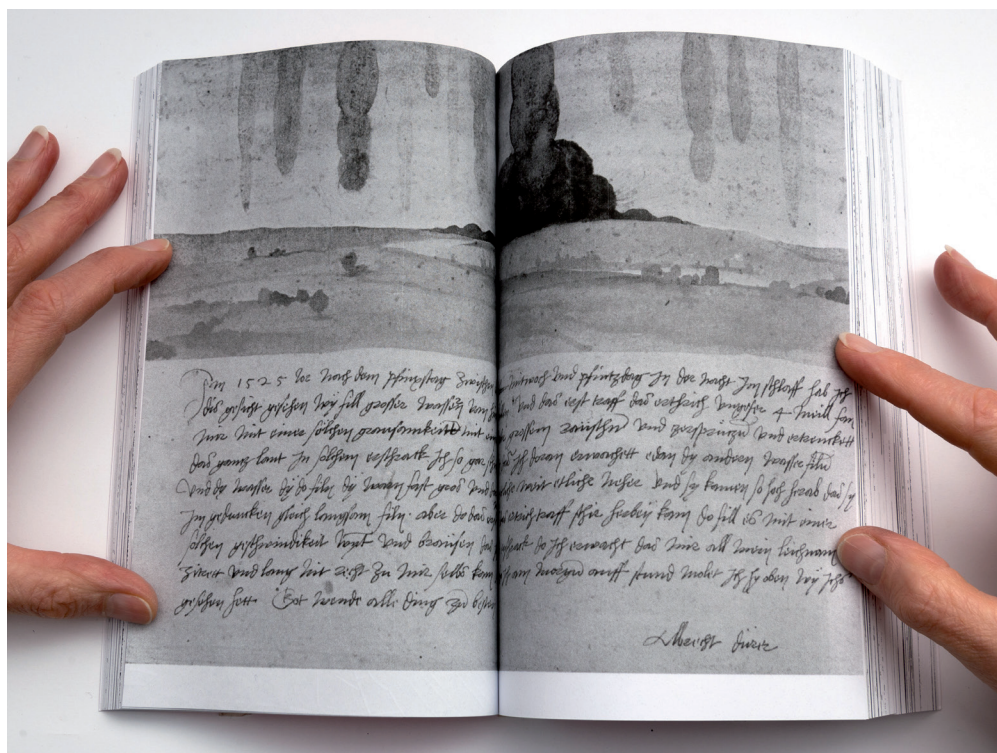 Im 1525 Jor nach dem pfinxstag zwischen mitwoch und pfintzdag in der nacht im schlaff hab ich
dis gesicht gesehen wy fill grosser wassern vom und das erst traff das erthrich ungefer 4 meill fan
mir mit einer solchen grausamkeitt mit grossem raüschn und zersprützn und ertrenckett
das gantz lant In solchem erschrack ich so gar ich doran erwachett e dan dy andern wasser filn
und dy wasser dy do filn dy warn fast gros und weit etliche neher und sy kamen so hoch herab das sy
im gedancken gleich langsam filn. aber do das ertrich traff schir herbey kam do fill es mit einer
solchen geschwindikeit wynt und braüsen do ich erwacht das mir all mein leichnam
zitrett und lang nit recht zu mir selbs kam am morgn auff stund molet ich hy oben wy ichs
gesehen hett. Got wende alle ding zu
Albrecht dürer